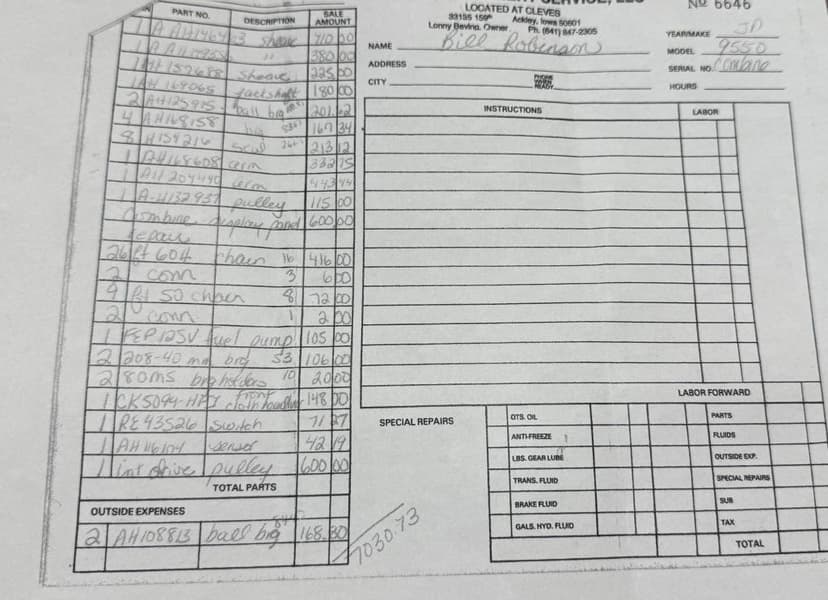 SERVICE, LLC
LOCATED AT CLEVES
33135 159th Ackley, Iowa 50601
Lonny Bevins, Owner Ph. (641) 847-2305
No 6646
NAME Bill Robinson
ADDRESS
CITY
PHONE WHEN READY
YEAR/MAKE JD
MODEL 9550
SERIAL NO. Combine
HOURS
PART NO. DESCRIPTION SALE AMOUNT
1 sheave 710 00
1 " 380 00
1 sheave 225 00
1 AH 169065 jackshaft 180 00
2 AH125975 ball brg 201.62
4 AH168158 brg 167 34
8 H154216 seal 213 12
1 AH168608 cerm 332 75
1 AH 204440 cerm 443 44
1 AH132937 pulley 115 00
Combine display panel 600 00
repair
26 ft 60H chain 16 416 00
2 conn 3 6 00
9 ft 50 chain 8 72 00
2 conn 1 2 00
1 FEP12SV fuel pump 105 00
2 208-40 mm brg 53 106 00
2 80MS brg holders 10 20 00
1 CK5094-HPJ front 148 00
1 RE43526 switch 71 27
1 AH116174 sensor 42 19
1 int drive pulley 600 00
TOTAL PARTS
OUTSIDE EXPENSES
2 AH108813 ball brg 168.30
7030.73
INSTRUCTIONS LABOR
LABOR FORWARD
SPECIAL REPAIRS
QTS. OIL PARTS
ANTI-FREEZE FLUIDS
LBS. GEAR LUBE OUTSIDE EXP.
TRANS. FLUID SPECIAL REPAIRS
BRAKE FLUID SUB
GALS. HYD. FLUID TAX
TOTAL